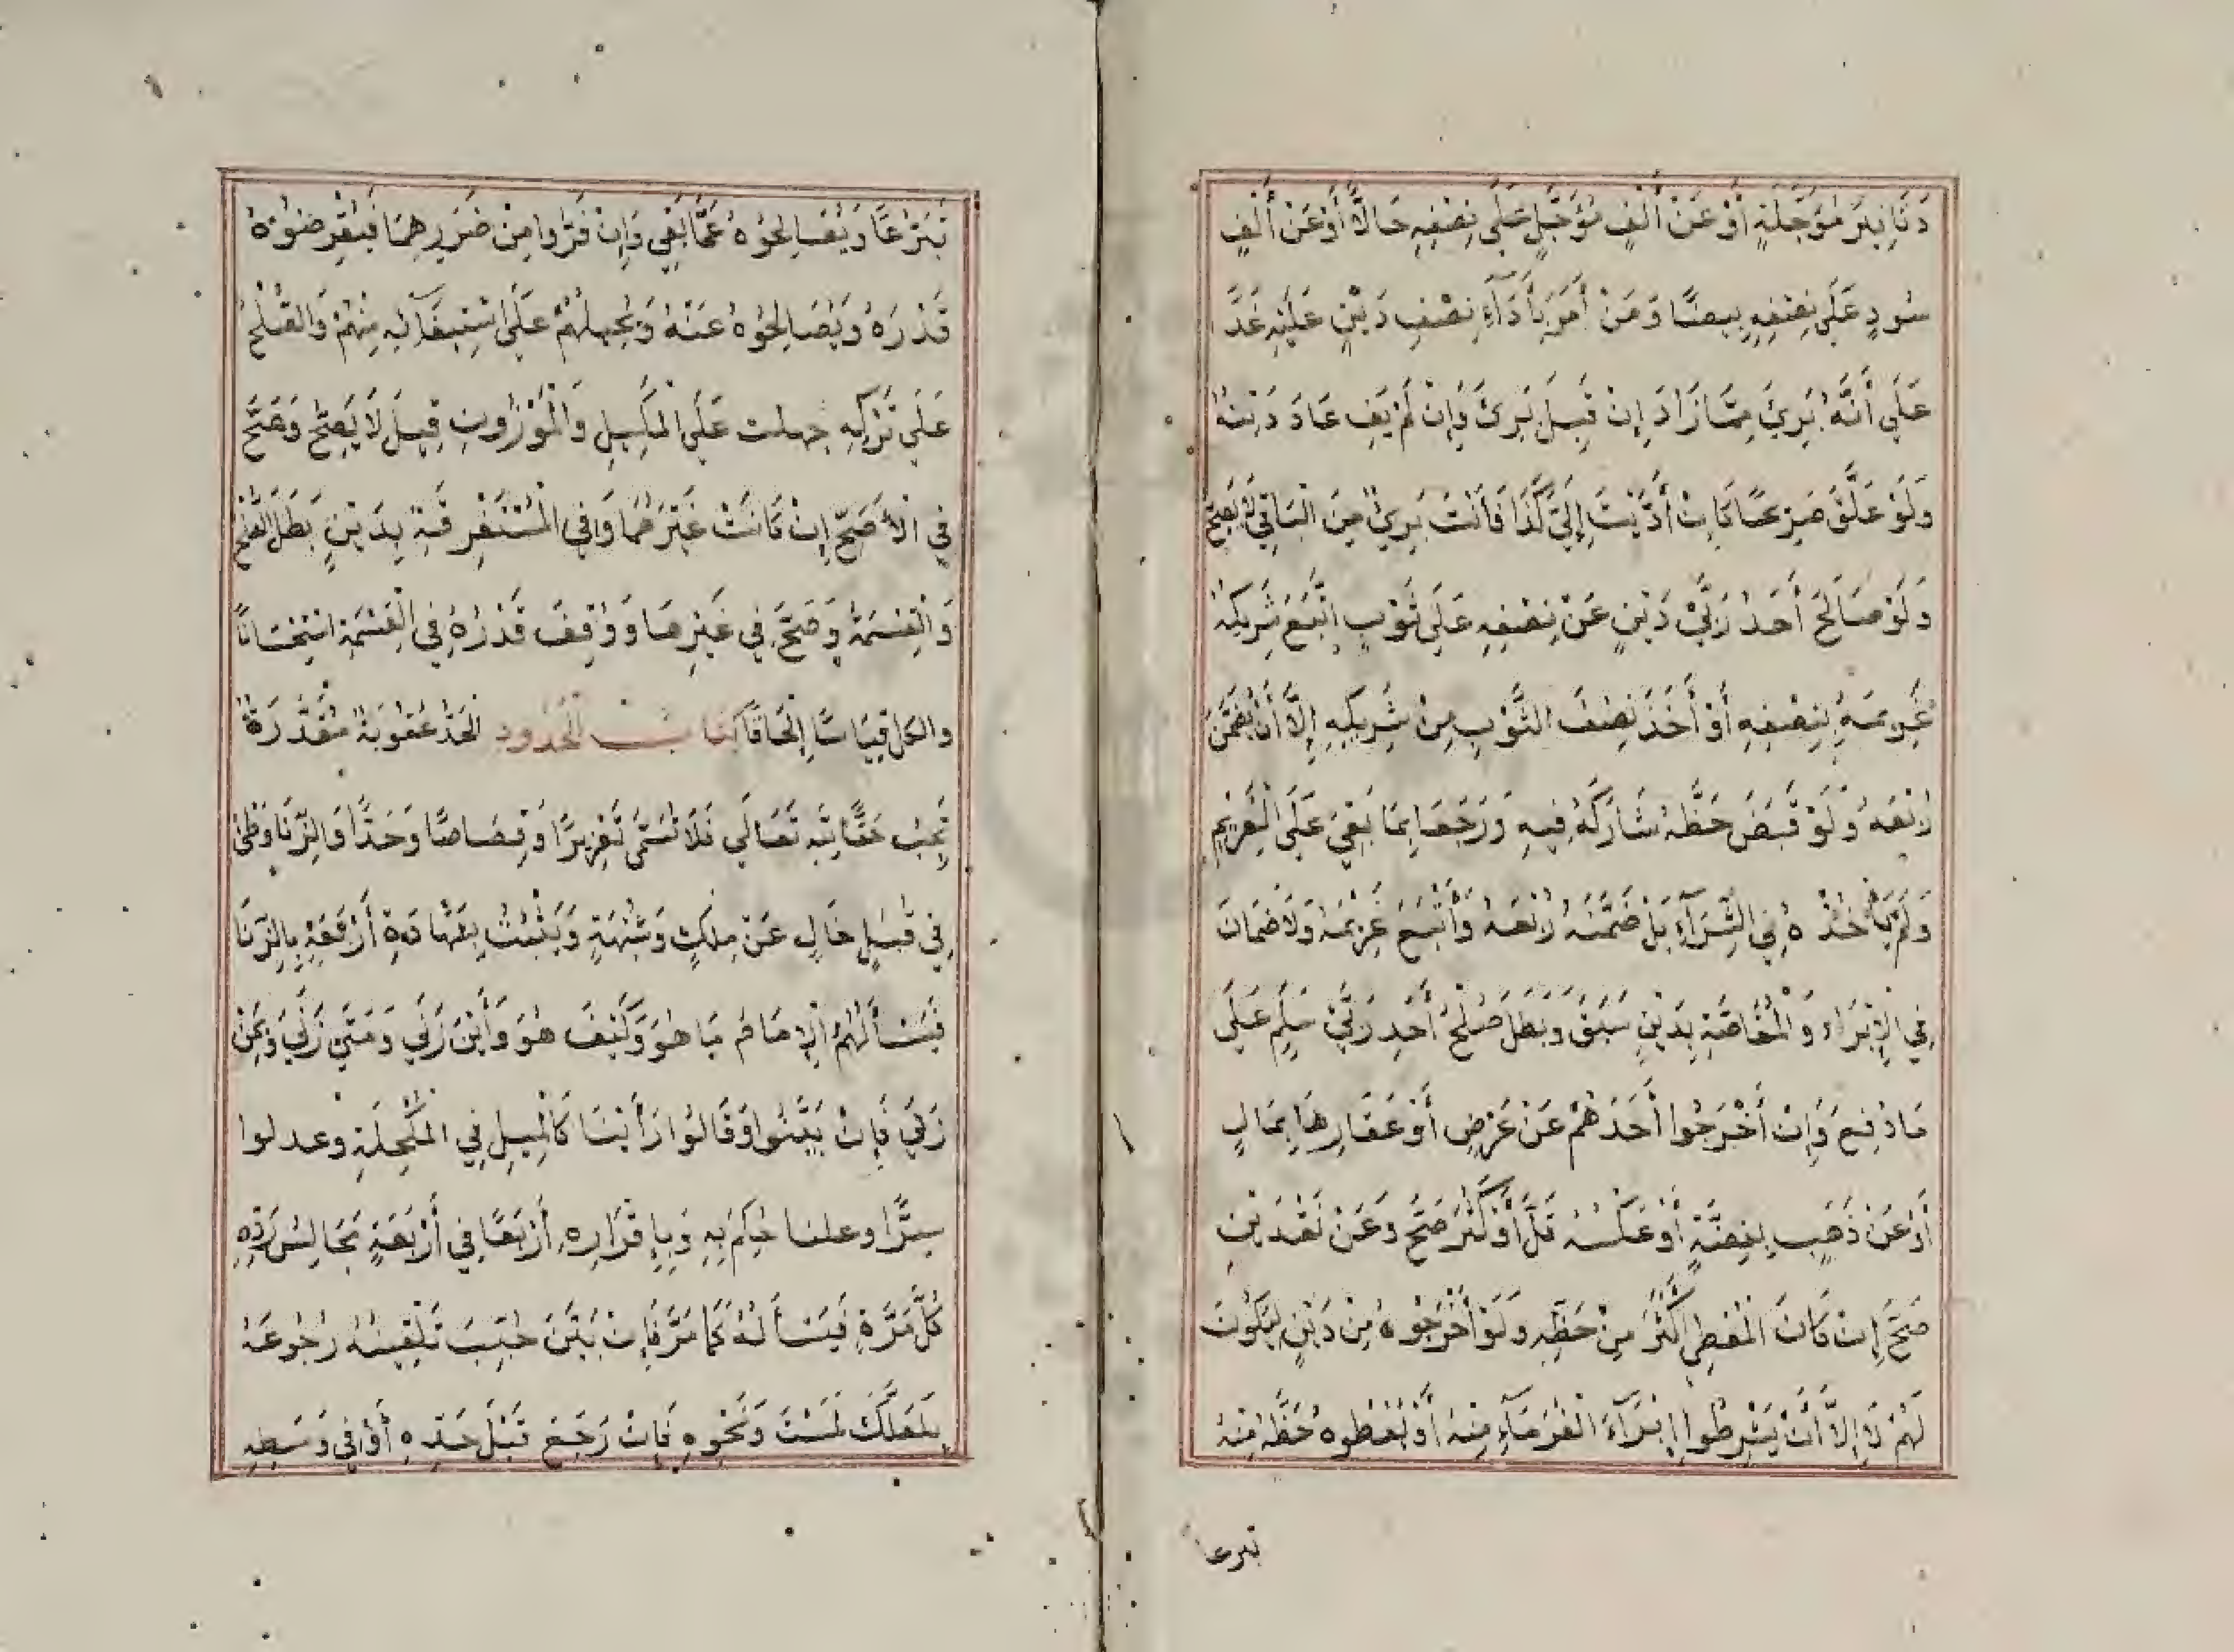 دَنَانِيرَ مُؤَجَّلَةٍ أَوْ عَنْ أَلْفٍ مُؤَجَّلٍ عَلَى نِصْفِهِ حَالًّا أَوْ عَنْ أَلْفٍ
سُودٍ عَلَى نِصْفِهِ بِيضًا وَمَنْ أَمَرَ بِأَدَآءِ نِصْفِ دَيْنٍ عَلَيْهِ غَدًا
عَلَى أَنَّهُ بَرِئَ مِمَّا زَادَ إِنْ قَبِلَ بَرِئَ وَإِنْ لَمْ يَفِ عَادَ دَيْنُهُ
وَلَوْ عَلَّقَ صَرِيحًا كَإِنْ أَدَّيْتَ إِلَيَّ كَذَا فَأَنْتَ بَرِيءٌ مِنَ الْبَاقِي لَا يَصِحُّ
وَلَوْ صَالَحَ أَحَدُ رَبَّيْ دَيْنٍ عَنْ نِصْفِهِ عَلَى ثَوْبٍ اتَّبَعَ شَرِيكُهُ
غَرِيمَهُ بِنِصْفِهِ أَوْ أَخَذَ نِصْفَ الثَّوْبِ مِنْ شَرِيكِهِ إِلَّا أَنْ يَضْمَنَ
رُبْعَهُ وَلَوْ قَبَضَ حَظَّهُ شَارَكَهُ فِيهِ وَرَجَعَا بِمَا بَقِيَ عَلَى الْغَرِيمِ
وَلَمْ يَأْخُذْهُ فِي الشِّرَآءِ بَلْ ضَمَّنَهُ رُبْعَهُ وَأَتْبَعَ غَرِيمَهُ وَلَا ضَمَانَ
فِي الْإِبْرَاءِ وَالْمُقَاصَّةِ بِدَيْنٍ سَبَقَ وَبَطَلَ صُلْحُ أَحَدِ رَبَّيْ سَلَمٍ عَلَى
مَا دُفِعَ وَإِنْ أَخْرَجُوا أَحَدَهُمْ عَنْ عَرْضٍ أَوْ عَقَارِهَا بِمَالٍ
أَوْ عَنْ ذَهَبٍ بِفِضَّةٍ أَوْ عَكْسُهُ قَلَّ أَوْ كَثُرَ صَحَّ وَعَنْ نَقْدَيْنِ
صَحَّ إِنْ كَانَ الْمُعْطِي أَكْثَرَ مِنْ حَظِّهِ وَلَوْ أَخْرَجُوهُ مِنْ دَيْنٍ لِيَكُونَ
لَهُمْ لَا إِلَّا أَنْ يَشْرِطُوا إِبْرَآءَ الْغُرَمَآءِ مِنْهُ أَوْ يُعْطُوهُ حَظَّهُ مِنْهُ
تبرعا
تَبَرُّعًا وَيُصَالِحُوهُ عَمَّا بَقِيَ وَإِنْ فَرُّوا مِنْ ضَرَرِهِمَا فَيُقْرِضُوهُ
قَدْرَهُ وَيُصَالِحُوهُ عَنْهُ وَيُحِيلُهُمْ عَلَى اسْتِيفَآئِهِ مِنْهُمْ وَالصُّلْحُ
عَلَى تَرْكِهِ جهلت عَلَى الْمَكِيلِ وَالْمَوْزُونِ قِيلَ لَا يَصِحُّ وَصَحَّ
فِي الْأَصَحِّ إِنْ كَانَتْ غَيْرَهُمَا وَفِي الْمُسْتَغْرِقَةِ بِدَيْنٍ بَطَلَ الصُّلْحُ
وَالْقِسْمَةُ وَصَحَّ فِي غَيْرِهَا وَوُقِفَ قَدْرُهُ فِي الْقِسْمَةِ اسْتِحْسَانًا
والكل قِيَاسًا إِلْحَاقًا كتاب الْحُدُودِ الْحَدُّ عُقُوبَةٌ مُقَدَّرَةٌ
تَجِبُ حَقًّا لِلّٰهِ تَعَالَى فَلَا تُسَمَّى تَعْزِيرًا وَقِصَاصًا وَحَدًّا وَالزِّنَا وَطْئٌ
فِي قُبُلٍ خَالٍ عَنْ مِلْكٍ وَشُبْهَةٍ وَيَثْبُتُ بِشَهَادَةِ أَرْبَعَةٍ بِالزِّنَا
فَيَسْأَلُهُمُ الْإِمَامُ مَا هُوَ وَكَيْفَ هُوَ وَأَيْنَ زَنَى وَمَتَى زَنَى وَبِمَنْ
زَنَى فَإِنْ بَيَّنُوا وَقَالُوا رَأَيْنَا كَالْمِيلِ فِي الْمُكْحُلَةِ وعدلوا
سِرًّا وعلنا حُكِمَ بِهِ وَبِإِقْرَارِهِ أَرْبَعًا فِي أَرْبَعَةِ مَجَالِسَ رَدَّهُ
كُلَّ مَرَّةٍ فَيَسْأَلُهُ كَمَا مَرَّ فَإِنْ بَيَّنَ حُبِّبَ تَلْقِينُهُ رُجُوعَهُ
بِلَعَلَّكَ لَمَسْتَ وَنَحْوِهِ فَإِنْ رَجَعَ قَبْلَ حَدِّهِ أَوْ فِي وَسَطِهِ